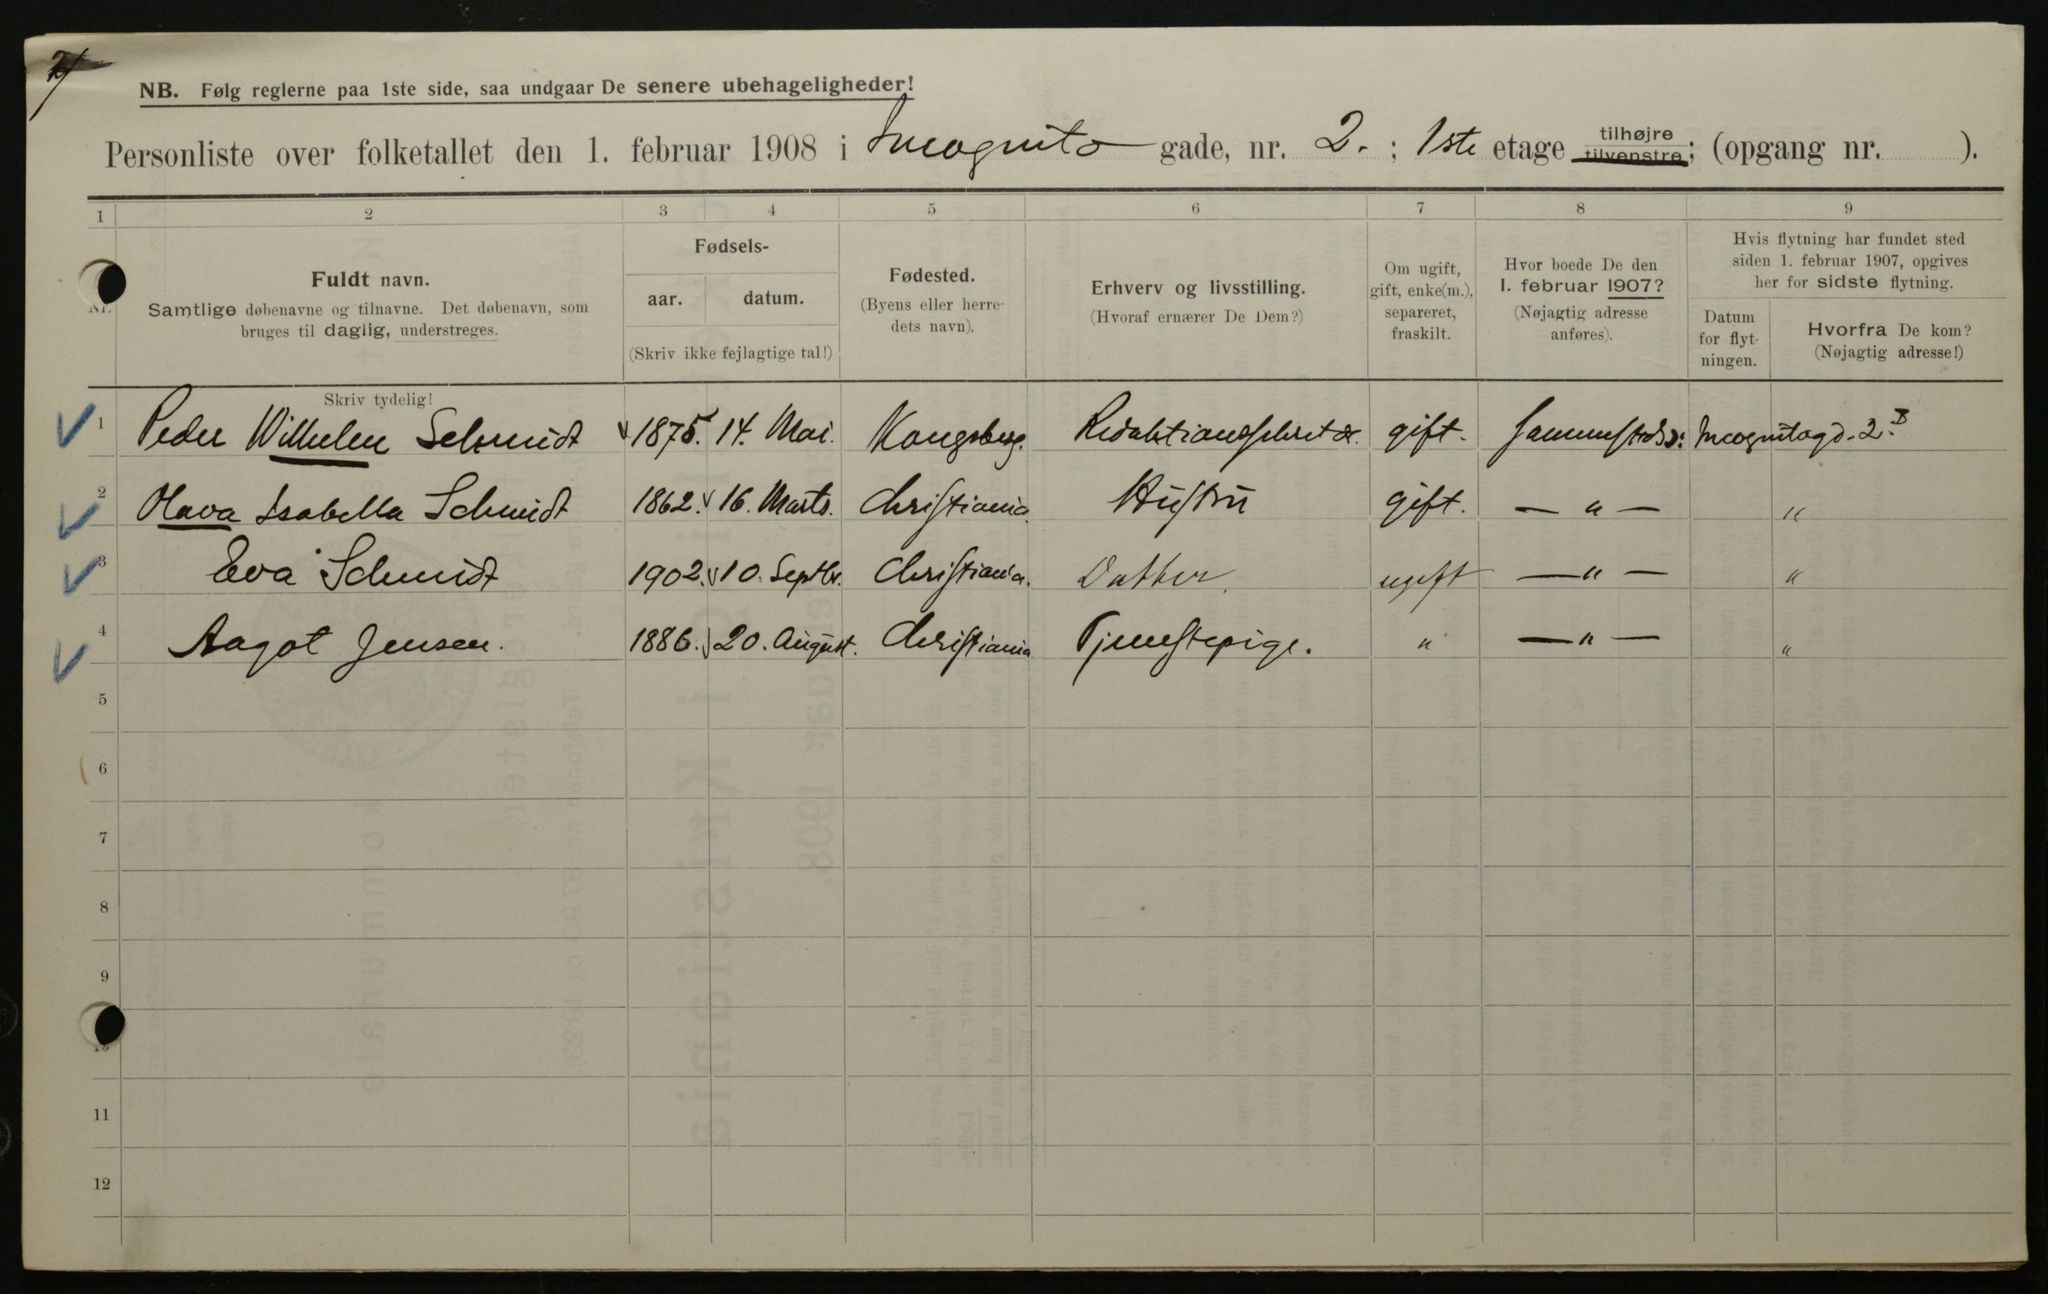 2/
NB. Følg reglerne paa 1ste side, saa undgaar De senere ubehageligheder!
Personliste over folketallet den 1. februar 1908 i Incognito gade, nr. 2. ; 1ste etage tilhøjre tilvenstre; (opgang nr. ).
1 2 3 4 5 6 7 8 9
Nr.
Fuldt navn.
Samtlige døbenavne og tilnavne. Det døbenavn, som
bruges til daglig, understreges.
Skriv tydelig!
Fødsels-
aar. datum.
(Skriv ikke fejlagtige tal!)
Fødested.
(Byens eller herre-
dets navn).
Erhverv og livsstilling.
(Hvoraf ernærer De Dem?)
Om ugift,
gift, enke(m.),
separeret,
fraskilt.
Hvor boede De den
1. februar 1907?
(Nøjagtig adresse
anføres).
Hvis flytning har fundet sted
siden 1. februar 1907, opgives
her for sidste flytning.
Datum
for flyt-
ningen.
Hvorfra De kom?
(Nøjagtig adresse!)
1 Peder Wilhelm Schmidt 1875. 14. Mai. Kongsberg. Redaktionssekretær gift. Sammesteds: Incognitogd. 2.I
2 Olava Isabella Schmidt 1862. 16. Marts. Christiania. Hustru gift. — " — "
3 Eva Schmidt 1902. 10. Septbr. Christiania. Datter. ugift — " — "
4 Aagot Jensen. 1886. 20. August. Christiania Tjenestepige. " — " — "
5
6
7
8
9
10
11
12